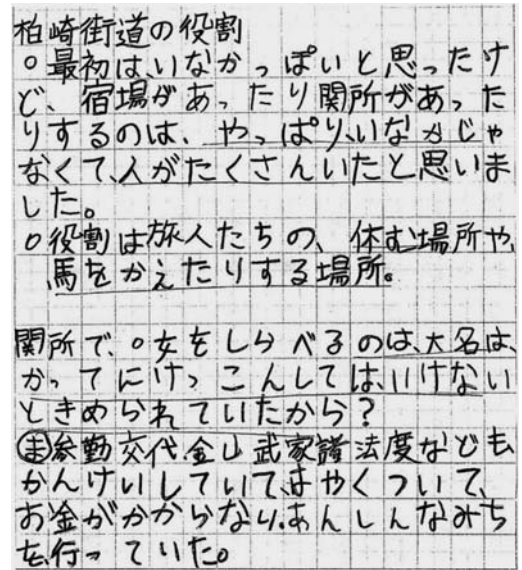 柏崎街道の役割
○最初は、いなかっぽいと思ったけ
ど、宿場があったり関所があった
りするのは、やっぱり、いなかじゃ
なくて、人がたくさんいたと思いま
した。
○役割は旅人たちの、休む場所や、
馬をかえたりする場所。
関所で、○女をしらべるのは、大名は、
かってにけっこんしては、いけない
ときめられていたから?
㋮参勤交代金山武家諸法度なども
かんけいしていて、はやくついて、
お金がかからない、あんしんなみち
を行っていた。